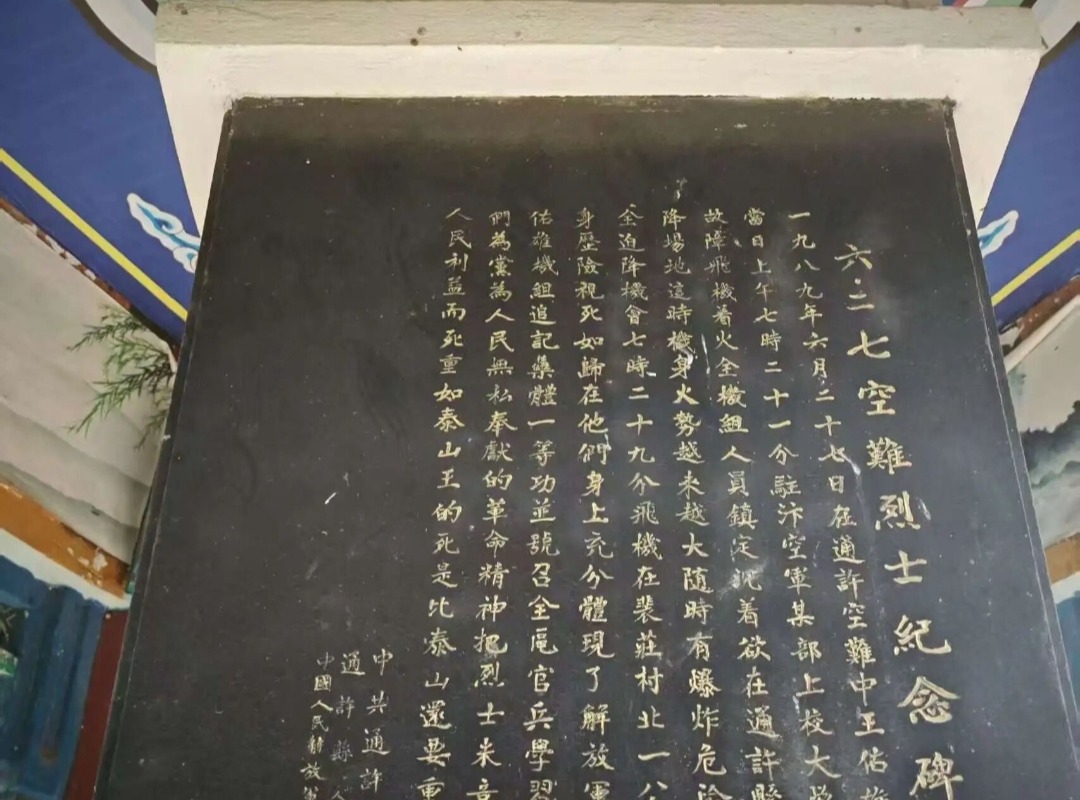 六·二七空難烈士紀念碑
一九八九年六月二十七日在通許空難中王佑雄
當日上午七時二十一分駐汴空軍某部上校大
故障飛機着火全機組人員鎮定沉着欲在通許縣
降場地這時機身火勢越来越大隨時有爆炸危險
全迫降機會七時二十九分飛機在裴莊村北一八
身歷險視死如歸在他們身上充分體現了解放軍
佑雄機組追記集體一等功並號召全區官兵學習
們為黨為人民無私奉獻的革命精神把烈士朱
人民利益而死重如泰山王的死是比泰山還要重
中共通許
通許縣人
中國人民解放軍